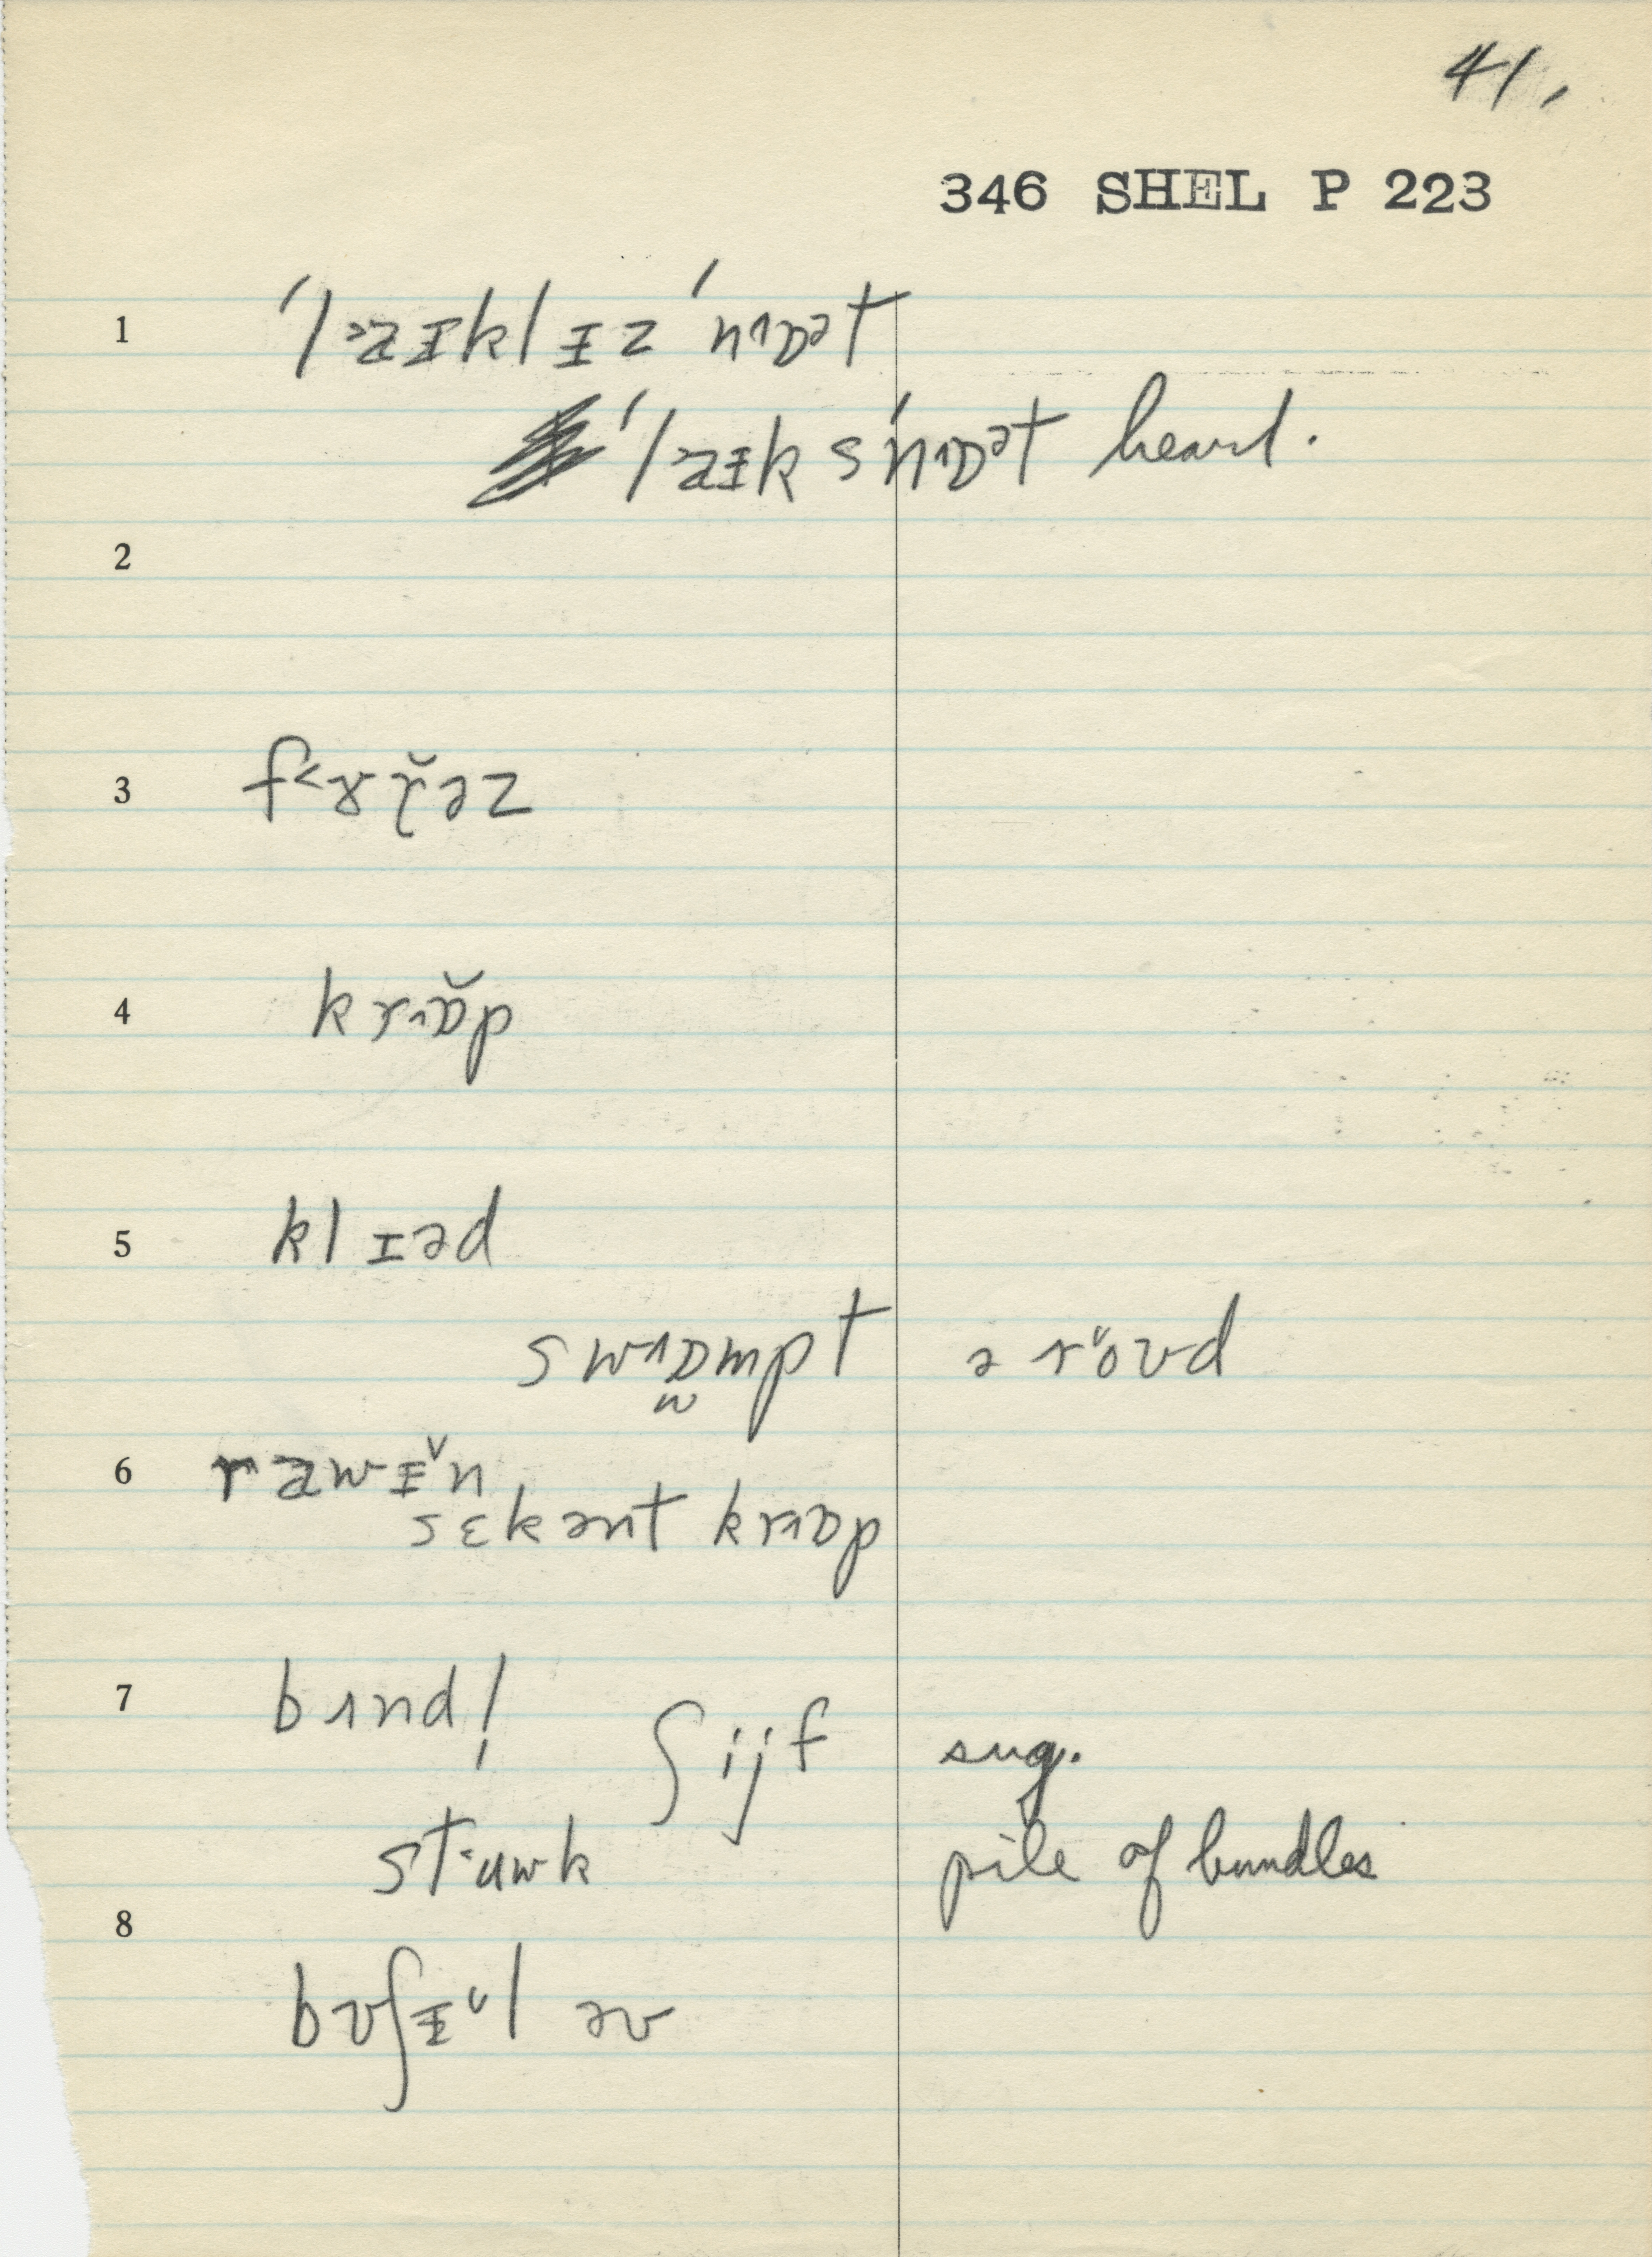 41.
346 SHEL P 223
1 ˈlaᵻklᵻz ˈnɒət
ˈlaᵻks ˈnɒət heard.
2
3 f˂ɤɤ̆əz
4 krɒ̆p
5 klᵻəd
swɒmpt ə rŏʊd
6 rawᵻ̆n
sɛkənt krɒp
7 bɪnd! ʃijf sug.
stʉwk pile of bundles
8
bʊʃᵻ̆l əv